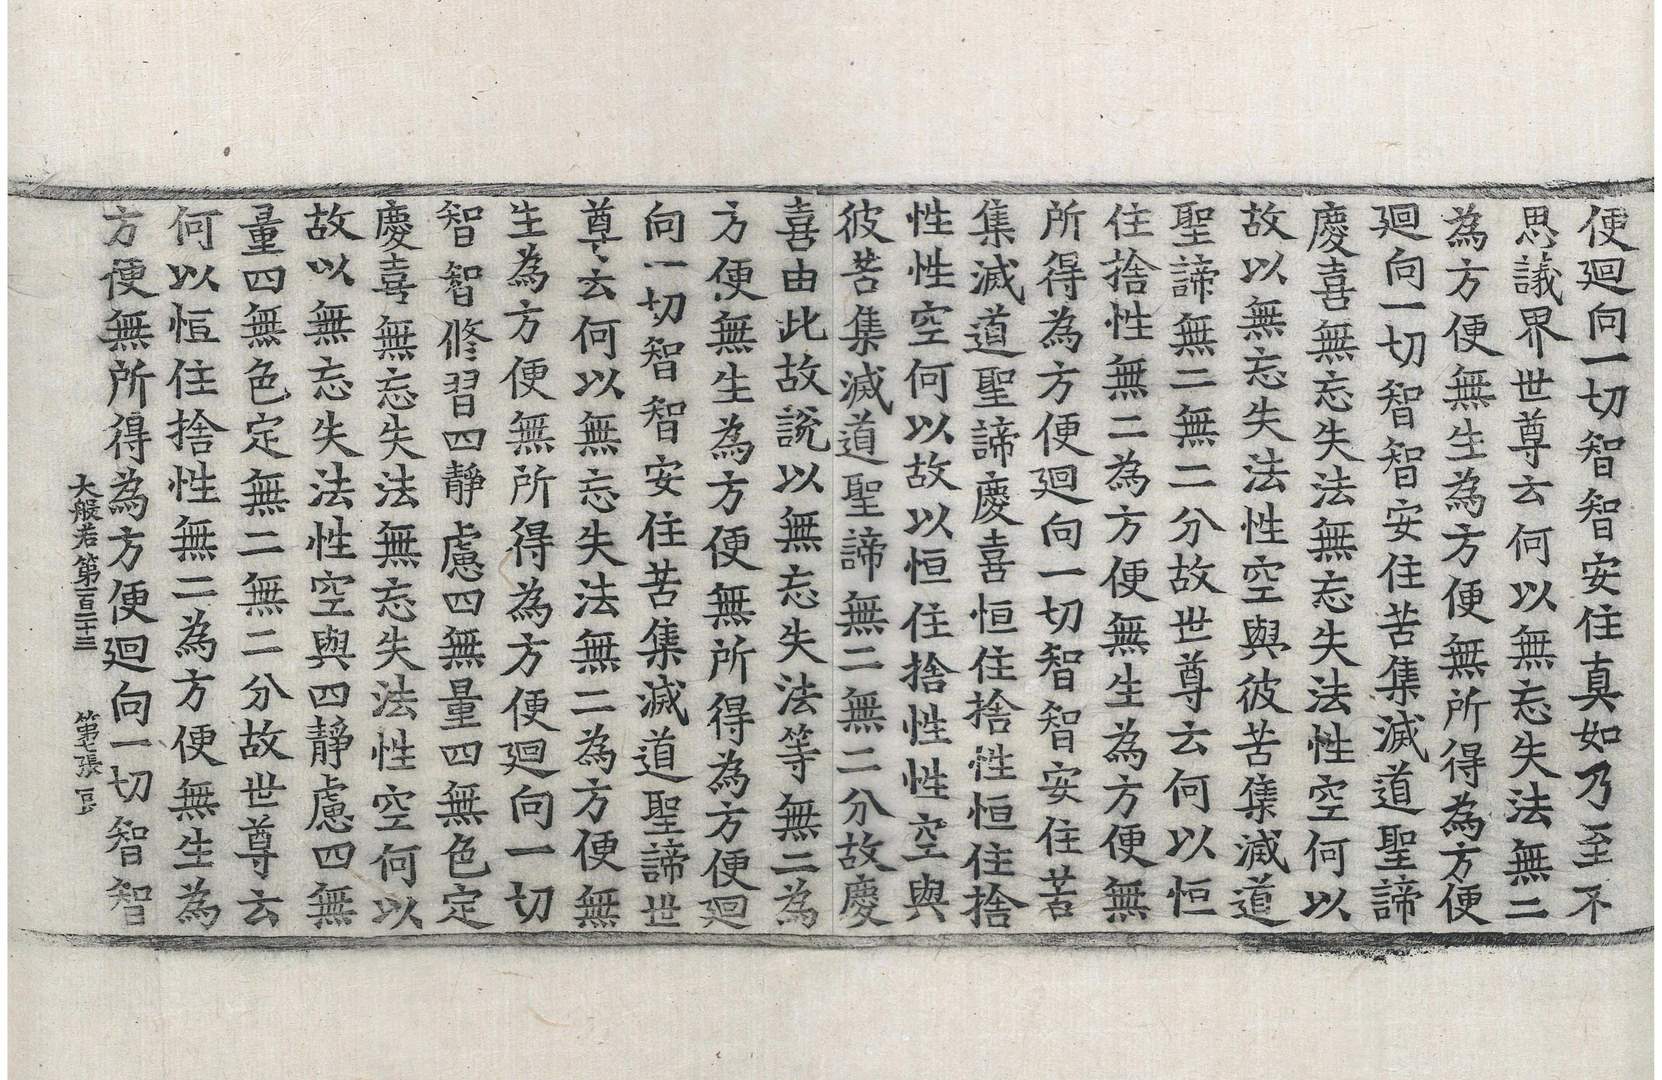 便迴向一切智智安住真如乃至不
思議界世尊云何以無忘失法無二
為方便無生為方便無所得為方便
迴向一切智智安住苦集滅道聖諦
慶喜無忘失法無忘失法性空何以
故以無忘失法性空與彼苦集滅道
聖諦無二無二分故世尊云何以恒
住捨性無二為方便無生為方便無
所得為方便迴向一切智智安住苦
集滅道聖諦慶喜恒住捨性恒住捨
性性空何以故以恒住捨性性空與
彼苦集滅道聖諦無二無二分故慶
喜由此故說以無忘失法等無二為
方便無生為方便無所得為方便迴
向一切智智安住苦集滅道聖諦世
尊云何以無忘失法無二為方便無
生為方便無所得為方便迴向一切
智智修習四靜慮四無量四無色定
慶喜無忘失法無忘失法性空何以
故以無忘失法性空與四靜慮四無
量四無色定無二無二分故世尊云
何以恒住捨性無二為方便無生為
方便無所得為方便迴向一切智智
大般若第一百二十三 第七張 辰